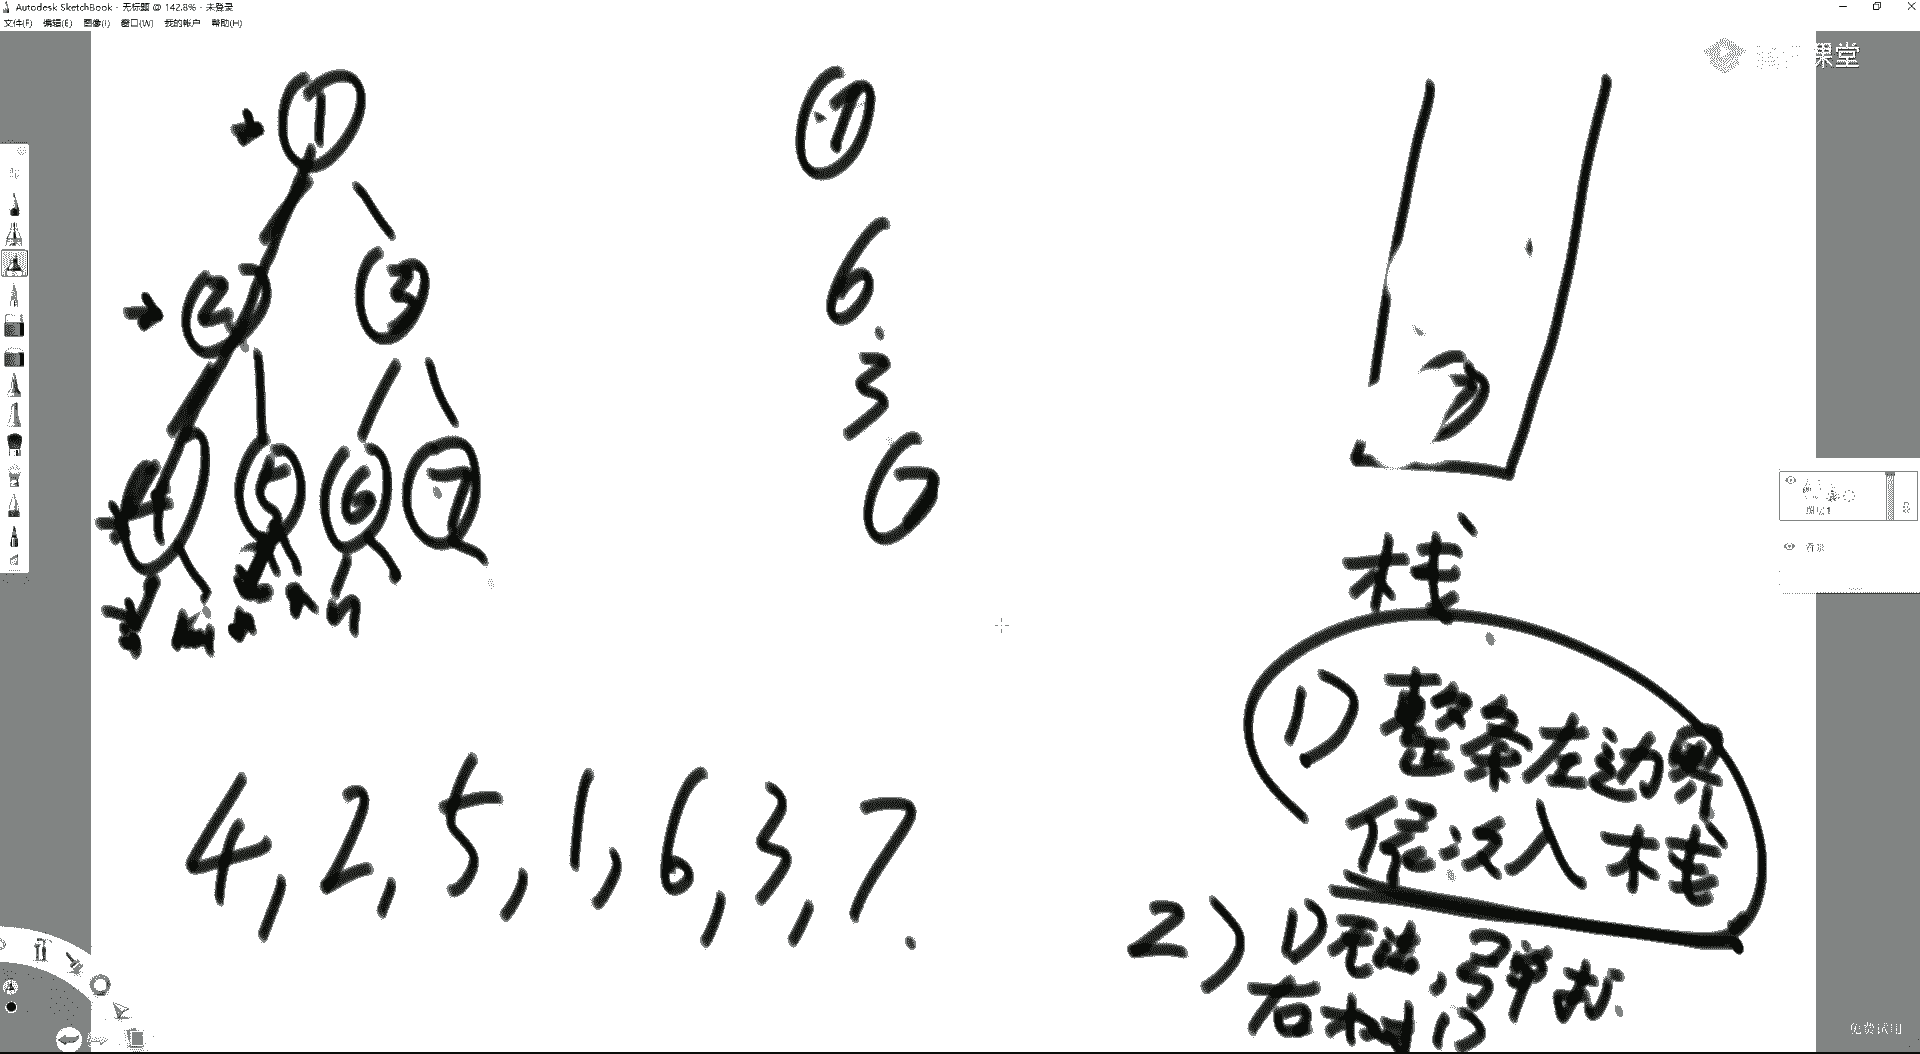 Autodesk SketchBook - 无标题 @ 142.8% - 未登录
文件(F) 编辑(E) 图像(I) 窗口(W) 我的帐户 帮助(H)
课堂
1
2 3
4 5 6 7
n n n
1
6
3
7
栈
1) 整条左边界
依次入栈
2) 1)无法,弹打
右树1)
4, 2, 5, 1, 6, 3, 7.
图层1
背景
免费试用